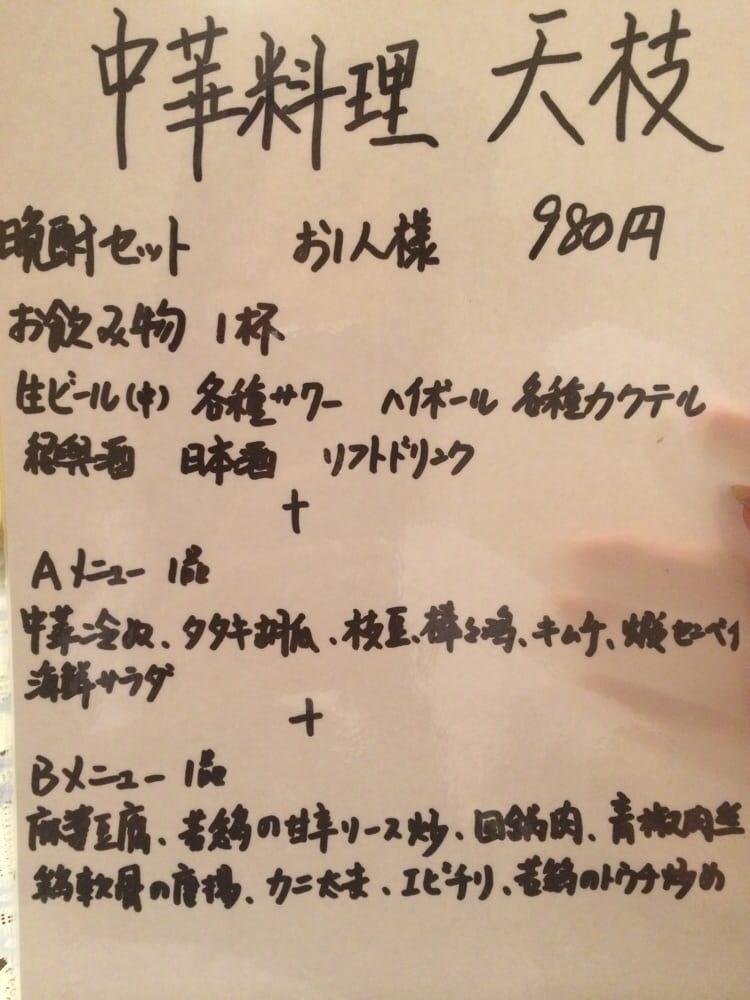 中華料理 天枝
晩酌セット お1人様 980円
お飲み物 1杯
生ビール(中) 各種サワー ハイボール 各種カクテル
紹興酒 日本酒 ソフトドリンク
+
Aメニュー 1品
中華冷奴、タタキ胡瓜、枝豆、棒々鶏、キムチ、蝦センベイ
海鮮サラダ
+
Bメニュー 1品
麻婆豆腐、若鶏の甘辛ソース炒、回鍋肉、青椒肉絲
鶏軟骨の唐揚、カニ太末、エビチリ、若鶏のトウチ炒め